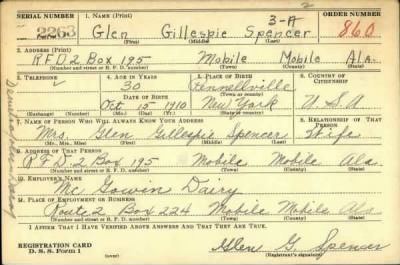 2
SERIAL NUMBER 1. NAME (Print) ORDER NUMBER
3-A
2263 Glen Gillespie Spencer 860
(First) (Middle) (Last)
2. ADDRESS (Print)
RFD 2 Box 195 Mobile Mobile Ala.
(Number and street or R. F. D. number) (Town) (County) (State)
3. TELEPHONE 4. AGE IN YEARS 5. PLACE OF BIRTH 6. COUNTRY OF CITIZENSHIP
30 Fennellville
DATE OF BIRTH (Town or county)
Oct 15 1910 New York U.S.A
(Mo.) (Day) (Yr.) (State or country)
7. NAME OF PERSON WHO WILL ALWAYS KNOW YOUR ADDRESS 8. RELATIONSHIP OF THAT PERSON
Mrs. Glen Gillespie Spencer Wife
(Mr., Mrs., Miss) (First) (Middle) (Last)
9. ADDRESS OF THAT PERSON
RFD-2 Box 195 Mobile Mobile Ala.
(Number and street or R. F. D. number) (Town) (County) (State)
10. EMPLOYER'S NAME
Mc Gowin Dairy
11. PLACE OF EMPLOYMENT OR BUSINESS
Route 2 Box 224 Mobile Mobile Ala
(Number and street or R. F. D. number) (Town) (County) (State)
I AFFIRM THAT I HAVE VERIFIED ABOVE ANSWERS AND THAT THEY ARE TRUE.
REGISTRATION CARD
D. S. S. Form 1
Glen G. Spencer
(Registrant's signature)